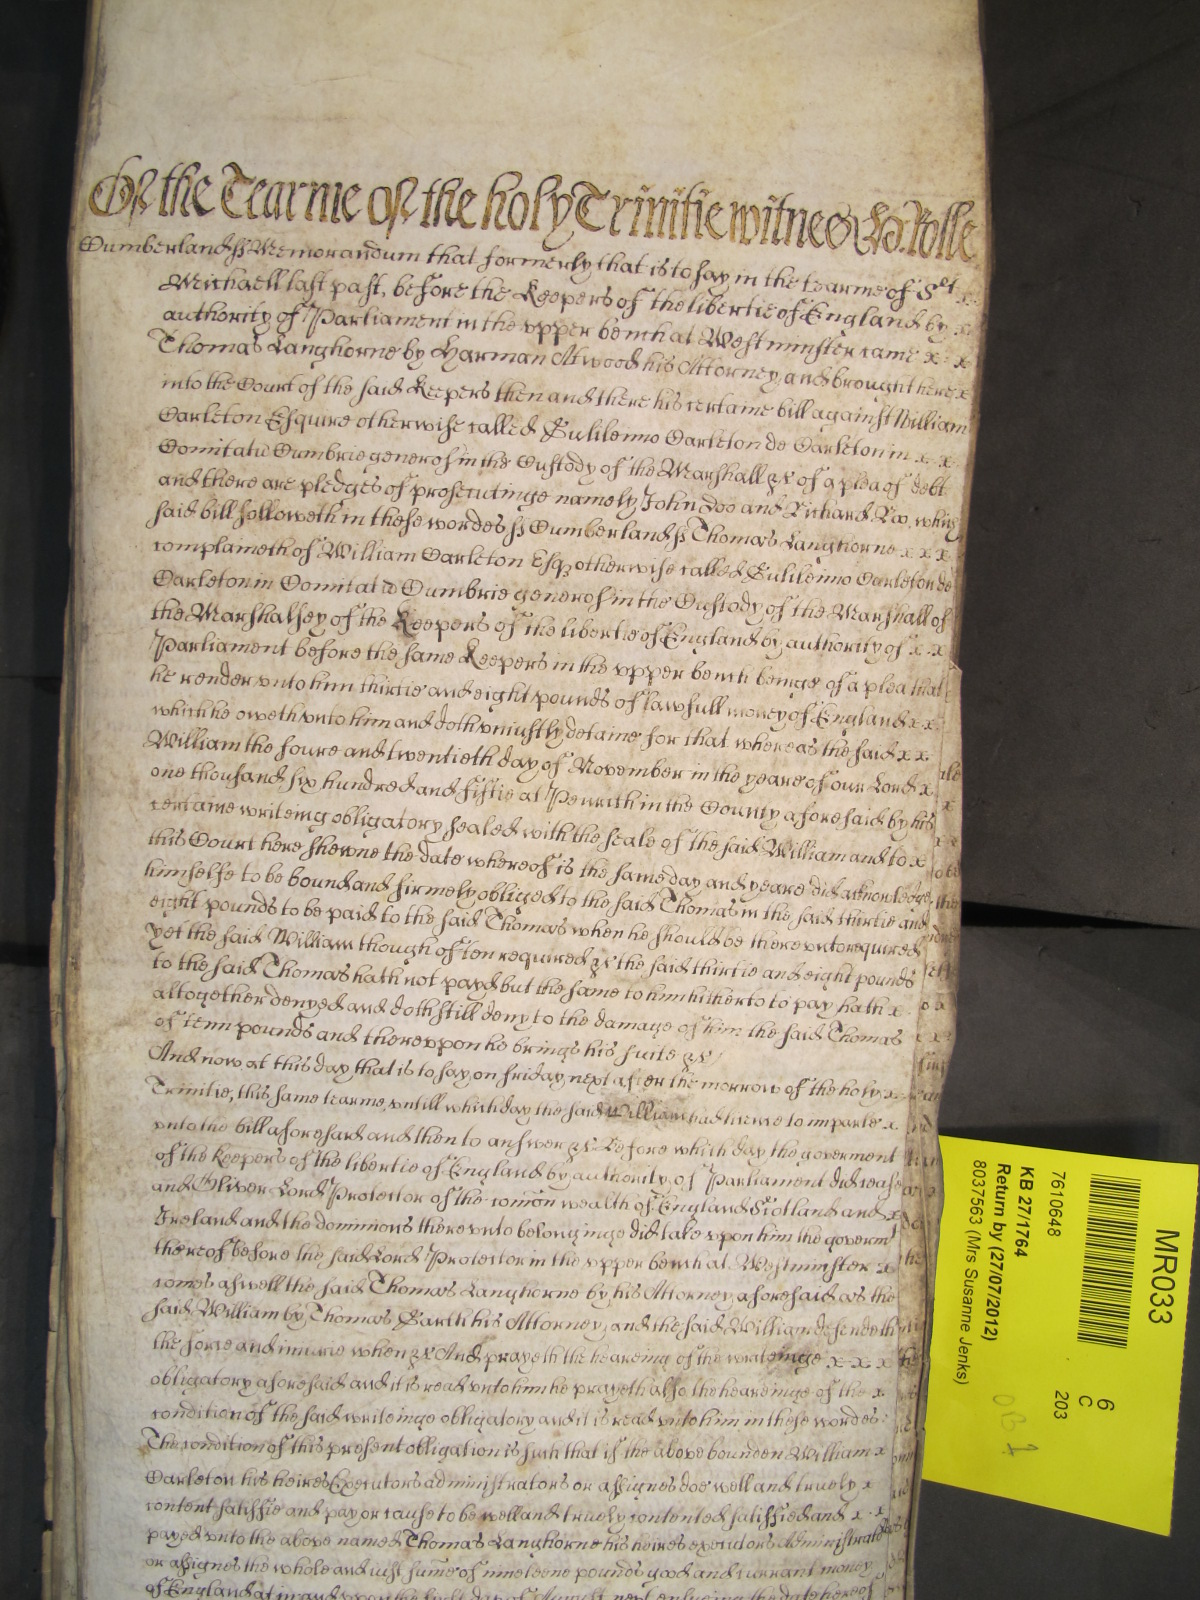 Of the Tearme of the holy Trinitie witnes H. Rolle
Cumberland ss Memorandum that formerly that is to say in the tearme of St x
Michaell last past, before the Keepers of the libertie of England by x
authority of Parliament in the vpper bench at Westminster came x x
Thomas Langhorne by Harman Atwood his Attorney, and brought here x
into the Court of the said Keepers then and there his certaine bill against William
Carleton Esquire otherwise called Guilielmo Carleton de Carleton in x x
Comitatu Cumbrie generos in the Custody of the Marshall &c of a plea of debt
and there are pledges of prosecutinge namely John Doo and Richard Roo, which
said bill followeth in these wordes ss Cumberland ss Thomas Langhorne x x x
complaineth of William Carleton Esq otherwise called Guilielmo Carleton de
Carleton in Comitatu Cumbrie generos in the Custody of the Marshall of
the Marshalsey of the Keepers of the libertie of England by authority of x x
Parliament before the same Keepers in the vpper bench beinge of a plea that
he render vnto him thirtie and eight pounds of lawfull money of England x x
which he oweth vnto him and doth vniustly detaine for that whereas the said x x
William the foure and twentieth day of November in the yeare of our Lord x
one thousand six hundred and fiftie at Penrith in the County aforesaid by his
certaine writeing obligatory sealed with the seale of the said William and to x
this Court here shewne the date whereof is the same day and yeare did acknowledge
himselfe to be bound and firmely obliged to the said Thomas in the said thirtie and
eight pounds to be paid to the said Thomas when he should be there vnto required
yet the said William though often required &c the said thirtie and eight pounds
to the said Thomas hath not payd but the same to him hitherto to pay hath x
altogether denyed and doth still deny to the damage of him the said Thomas
of tenn pounds and therevpon he brings his suite &c
And now at this day that is to say on friday next after the morrow of the holy x
Trinitie, this same tearme, vntill which day the said William had licence to imparle x
vnto the bill aforesaid and then to answer &c Before which day the goverment
of the Keepers of the libertie of England by authority of Parliament did cease
and Oliver Lord Protector of the comon wealth of England Scotland and x
Ireland and the dominions there vnto belonginge did take vpon him the goverm
thereof before the said Lord Protector in the vpper bench at Westminster x
comes aswell the said Thomas Langhorne by his Attorney aforesaid as the
said William by Thomas Garth his Attorney, and the said William defendeth
the force and iniurie when &c And prayeth the heareing of the writeinge x x x
obligatory aforesaid and it is read vnto him he prayeth also the hearinge of the x
condition of the said writeinge obligatory and it is read vnto him in these wordes
The condition of this present obligation is such that if the above bounden William x
Carleton his heires Executors administrators or assignes doe well and truely x
content satisfie and pay or cause to be well and truely contented satisfied and x x
payed vnto the above named Thomas Langhorne his heires executors Administrators
or assignes the whole and iust sume of nineteene pounds good and currant money
of England at in and vpon the first day of August next ensueing the date hereof
MR033
6
C
203
7610648
KB 27/1764
Return by (27/07/2012)
8037563 (Mrs Susanne Jenks)